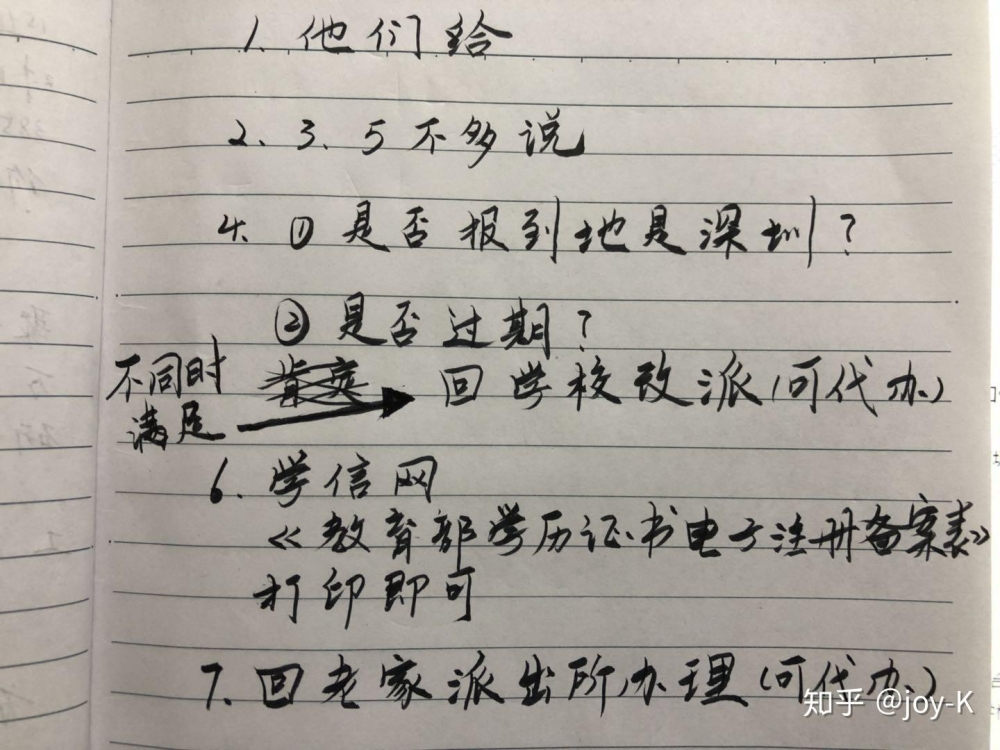 1. 他们给
2、3、5不多说
4. ① 是否报到地是深圳?
② 是否过期?
不同时
满足
回学校改派(可代办)
6. 学信网
《教育部学历证书电子注册备案表》
打印即可
7. 回老家派出所办理(可代办)
知乎 @joy-K